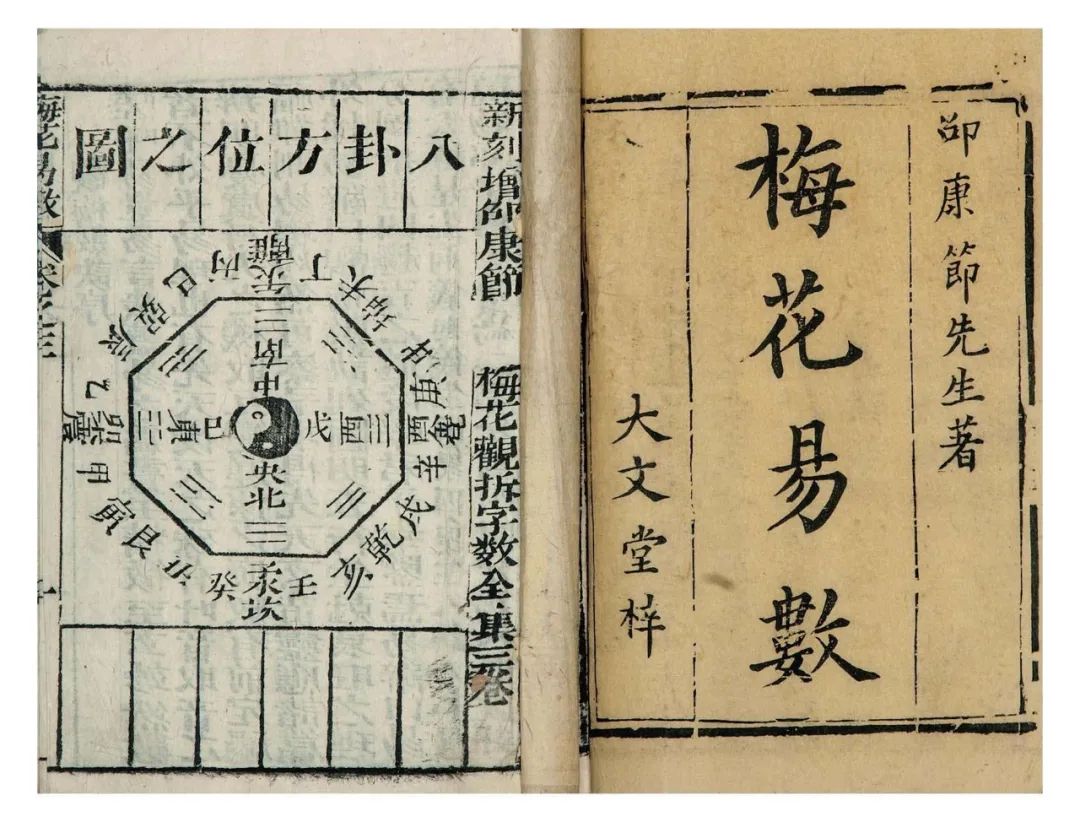 邵康節先生著
梅花易數
大文堂梓
新刻增邵康節 梅花觀拆字數全集三卷
八卦方位之圖
丙 午離 丁
未坤申
庚 酉兌 辛
戌乾亥
壬 子坎 癸
丑艮寅
甲 卯震 乙
辰巽巳
南
中
東 己 戊 西
央
北
梅花易数 卷之三